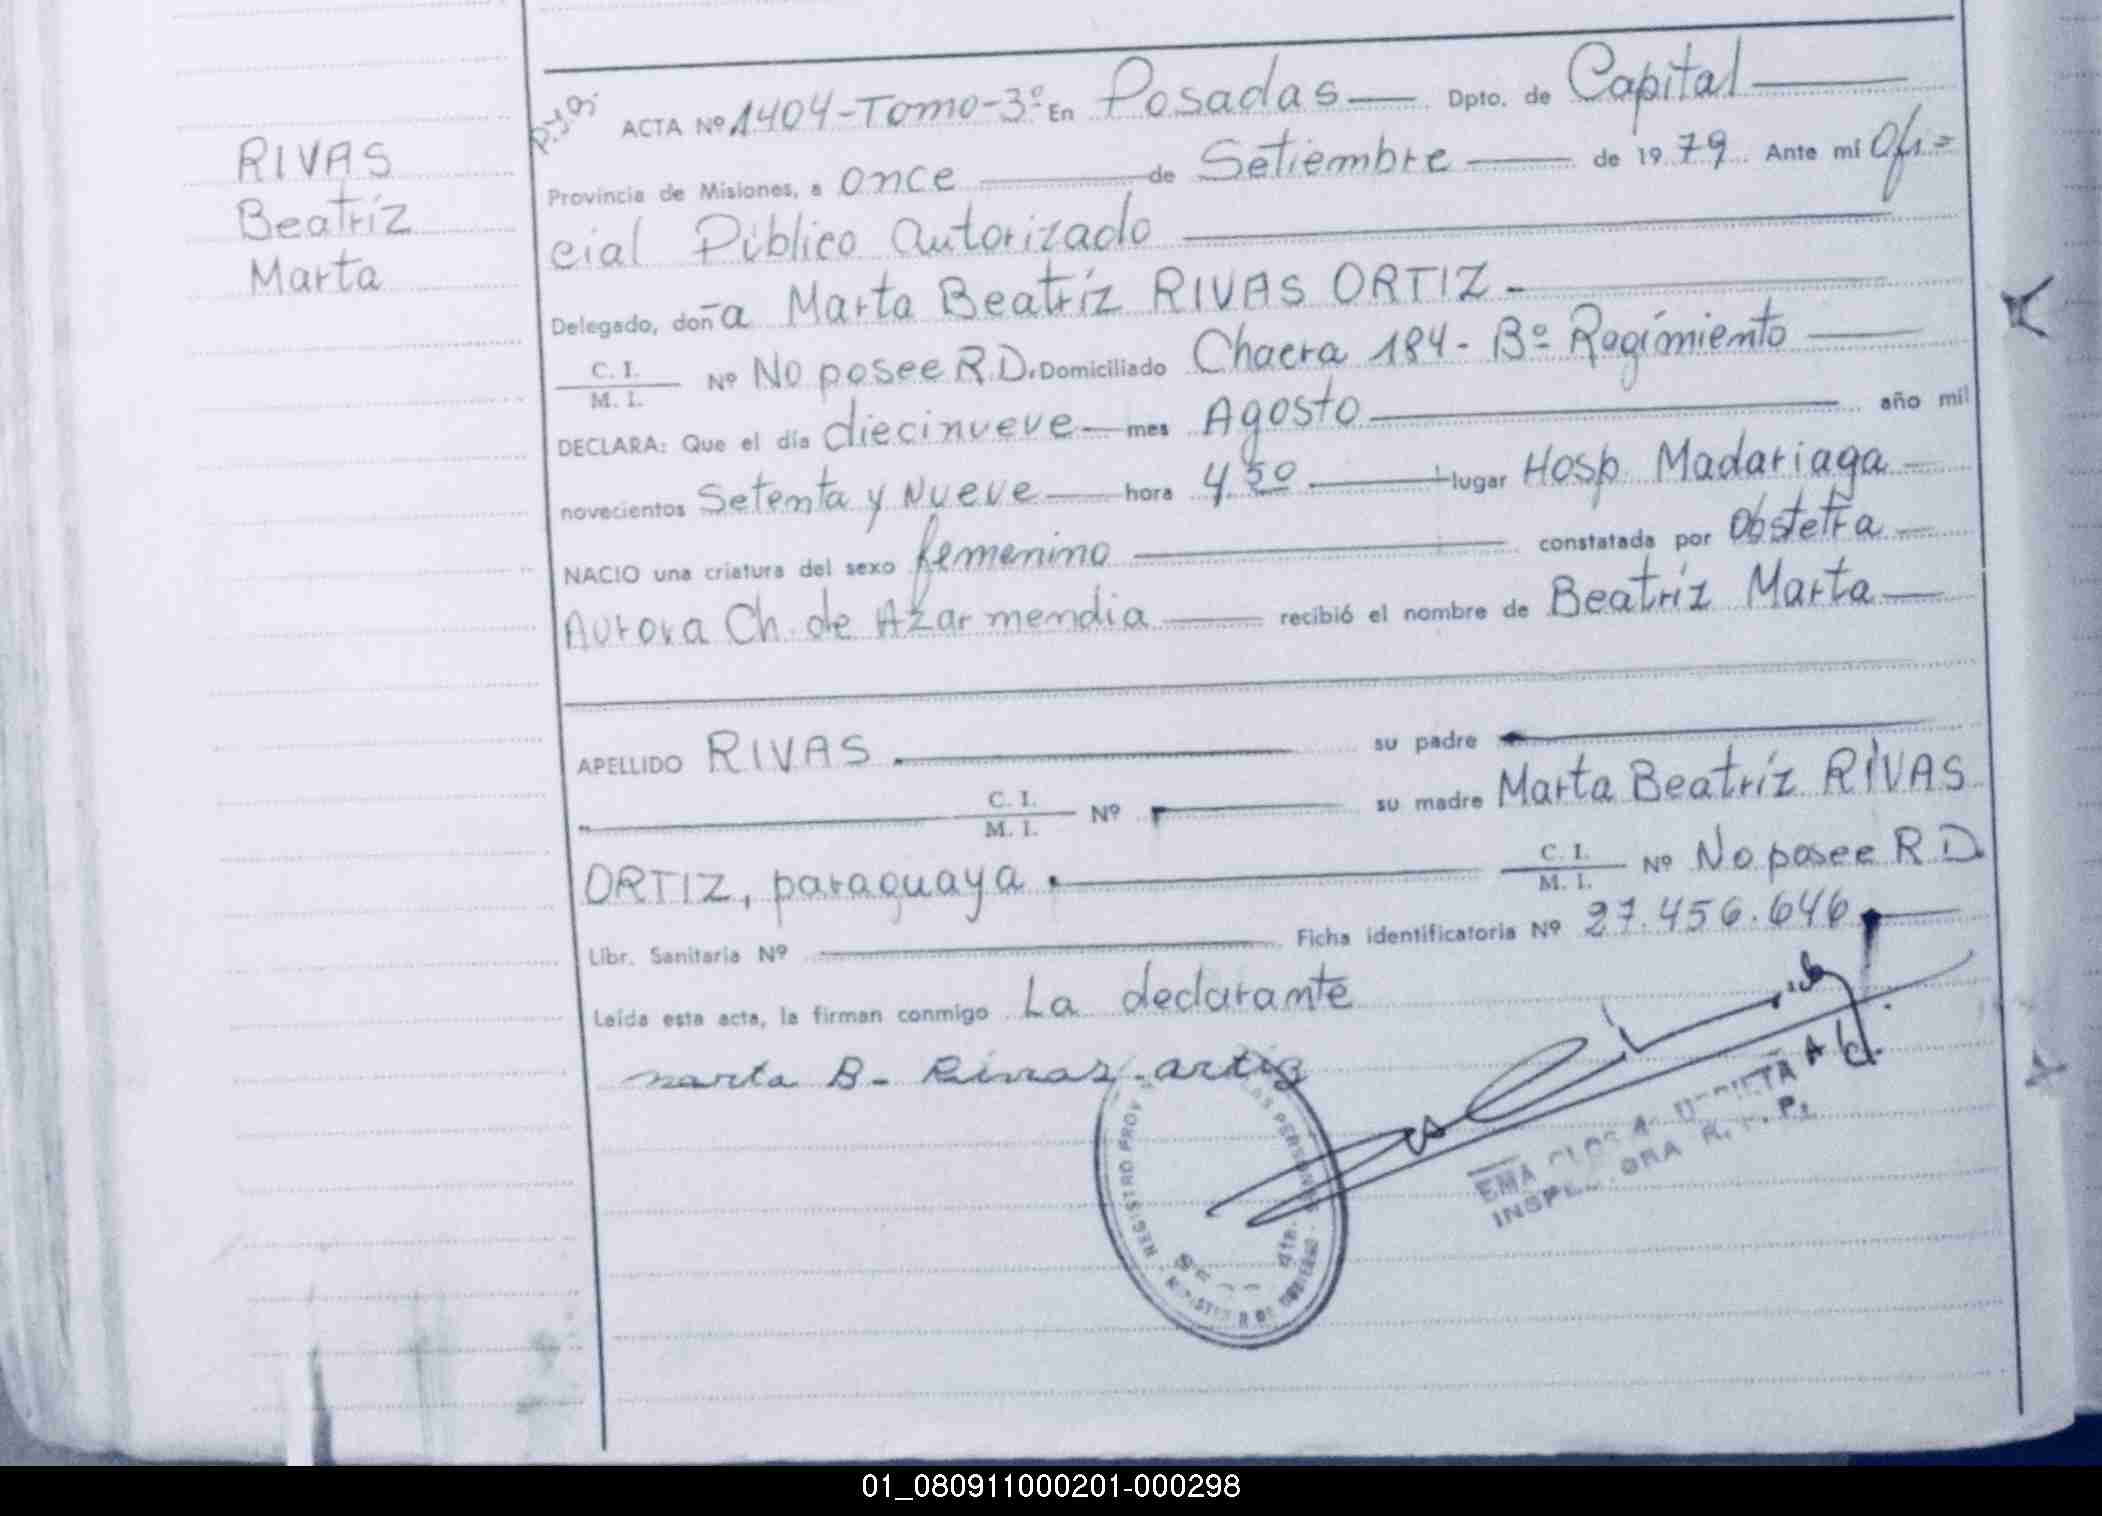 RIVAS
Beatríz
Marta
ACTA Nº 1404-Tomo-3º En Posadas Dpto. de Capital
Provincia de Misiones, a once de Setiembre de 1979 Ante mi Ofi=
cial Público autorizado
Delegado, doña Marta Beatríz RIVAS ORTIZ.-
C. I.
M. I. Nº No posee R.D. Domiciliado Chacra 184- Bº Regimiento
DECLARA: Que el día diecinueve mes Agosto año mil
novecientos Setenta y Nueve hora 4.30 lugar Hosp. Madariaga
NACIO una criatura del sexo femenino constatada por Obstetra
Aurora Ch. de Azarmendia recibió el nombre de Beatríz Marta
APELLIDO RIVAS su padre
C. I.
M. I. Nº su madre Marta Beatríz RIVAS
ORTIZ, paraguaya C. I.
M. I. Nº No posee R D.
Libr. Sanitaria Nº Ficha identificatoria Nº 27.456.646
Leída esta acta, la firman conmigo La declarante
marta B- Rivas-artiz
REGISTRO PROV LAS PERSONAS
EMA
INSPE
01_080911000201-000298